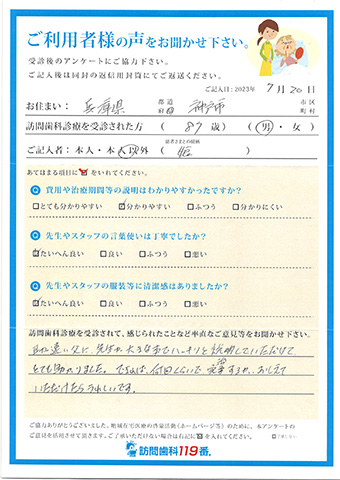 ご利用者様の声をお聞かせ下さい。
受診後のアンケートにご協力下さい。
ご記入後は同封の返信用封筒にてご返送ください。
ご記入日:2023年 7月 20日
お住まい: 兵庫県 都道府県 神戸市 市区町村
訪問歯科診療を受診された方 ( 87 歳) (男・女)
ご記入者:本人・本人以外 ( )
あてはまる項目に☑をいれてください。
Q 費用や治療期間等の説明はわかりやすかったですか?
□とても分かりやすい ☑分かりやすい □ふつう □分かりにくい
Q 先生やスタッフの言葉使いは丁寧でしたか?
☑たいへん良い □良い □ふつう □悪い
Q 先生やスタッフの服装等に清潔感はありましたか?
☑たいへん良い □良い □ふつう □悪い
訪問歯科診療を受診されて、感じられたことなど率直なご意見等をお聞かせ下さい。
耳の遠い父に、先生が大きな声でハッキリと説明していただけて
とても助かりました。できれば、何回くらいで完了するか、おしえて
いただけたらうれしいです。
ご協力ありがとうございました。地域在宅医療の啓蒙活動(ホームページ等)のために、本アンケートの
ご意見を活用させて頂きます。ご了承いただけない場合は右記に☑を入れてください。
訪問歯科119番。